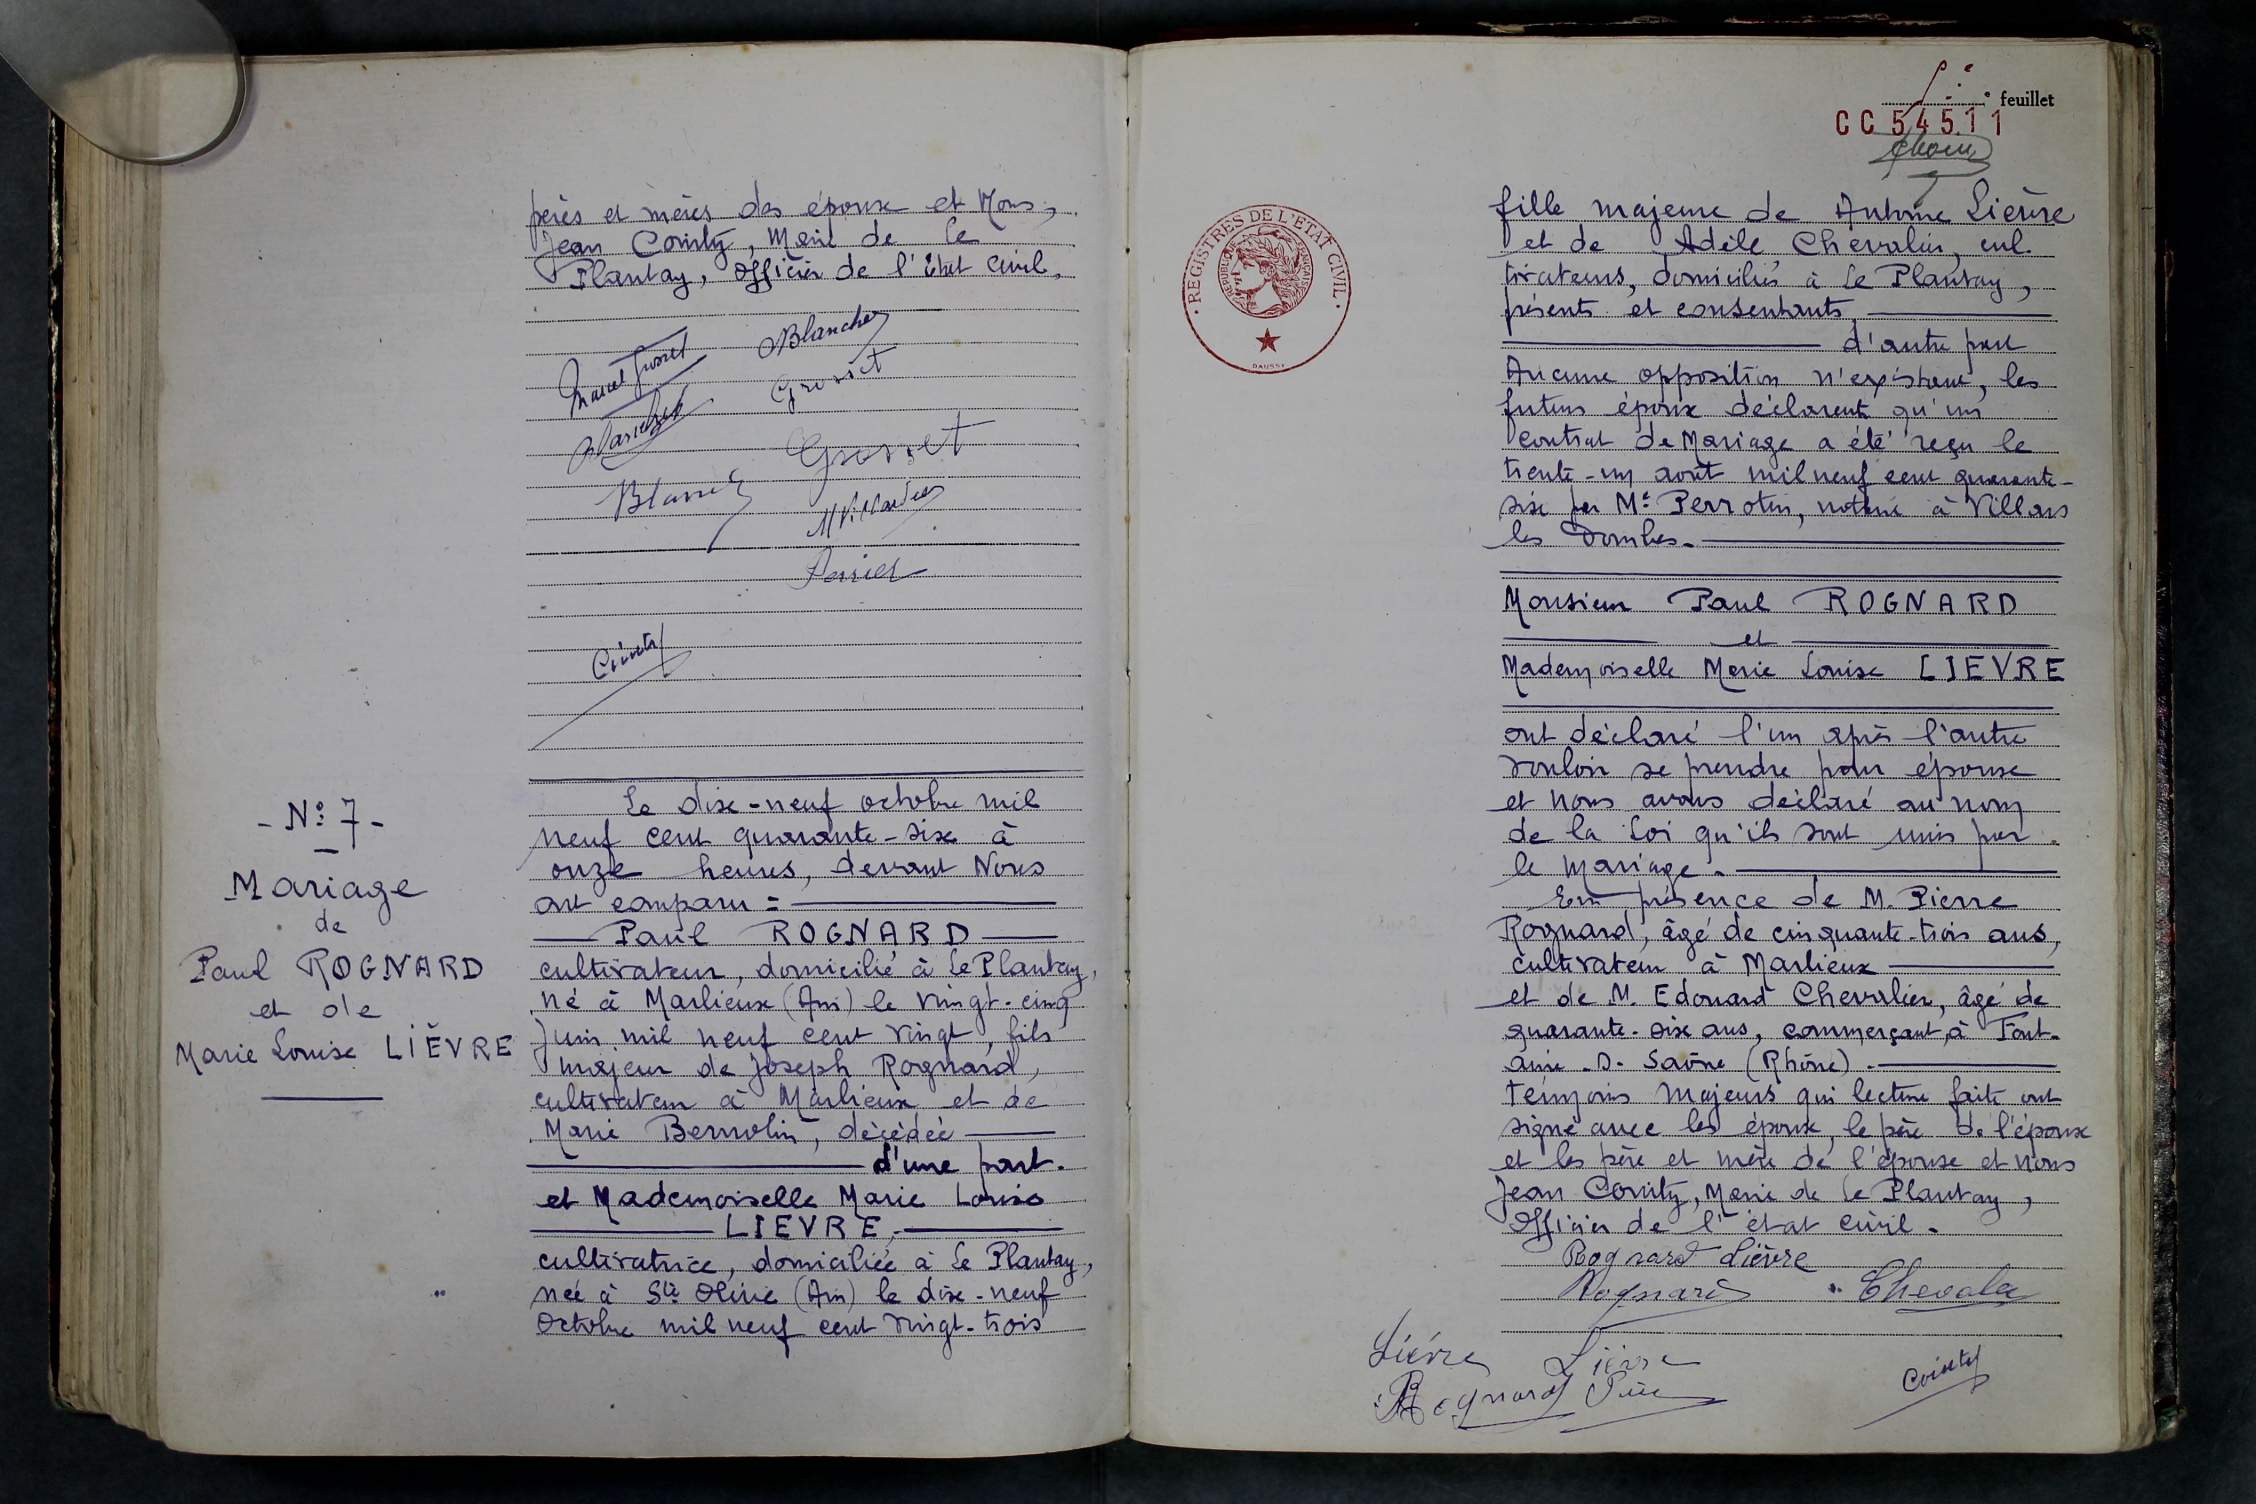 pères et mères des époux et Nous,
Jean Cointy, Maire de Le
Plantay, Officier de l'état civil.
Marcel Grosset
Blanchet
Grosset
Grosset
Cointy
- N° 7 -
Mariage
de
Paul ROGNARD
et de
Marie Louise LIÈVRE
Le dix-neuf octobre mil
neuf cent quarante-six à
onze heures, devant Nous
ont comparu =
Paul ROGNARD
cultivateur, domicilié à Le Plantay,
né à Marlieux (Ain) le vingt-cinq
juin mil neuf cent vingt, fils
majeur de Joseph Rognard,
cultivateur à Marlieux et de
Marie, décédée
d'une part.
et Mademoiselle Marie Louise
LIEVRE,
cultivatrice, domiciliée à Le Plantay,
née à Ste Olive (Ain) le dix-neuf
Octobre mil neuf cent vingt-trois
feuillet
CC 54511
REGISTRES DE L'ETAT CIVIL
REPUBLIQUE FRANÇAISE
fille majeure de Antoine Lièvre
et de Adèle Chevalier, cul
tivateurs, domiciliés à Le Plantay,
présents et consentants
d'autre part
Aucune opposition n'existant, les
futurs époux déclarent qu'un
contrat de Mariage a été reçu le
trente-un août mil neuf cent quarante-
six par Me Perrotin, notaire à Villars
les Dombes.
Monsieur Paul ROGNARD
et
Mademoiselle Marie Louise LIEVRE
ont déclaré l'un après l'autre
vouloir se prendre pour époux
et nous avons déclaré au nom
de la Loi qu'ils sont unis par
le mariage.
En présence de M. Pierre
Rognard, âgé de cinquante-trois ans,
cultivateur à Marlieux
et de M. Edouard Chevalier, âgé de
quarante-six ans, commerçant à Font-
aine-s-Saône (Rhône).
témoins majeurs qui lecture faite ont
signé avec les époux, le père de l'époux
et les père et mère de l'épouse et Nous
Jean Cointy, Maire de Le Plantay,
Officier de l'état civil.
Rognard Lièvre
Rognard Chevalier
Lièvre Lièvre
Rognard Père
Cointy